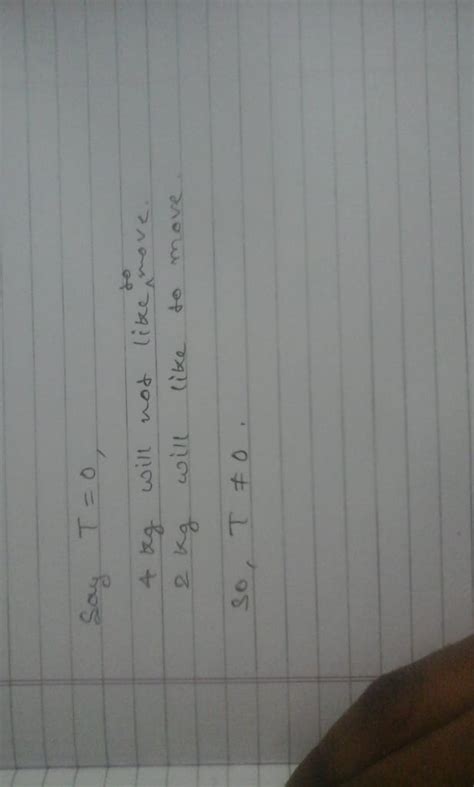 Say T = 0,
4 kg will not like to move.
2 kg will like to move.
So, T ≠ 0.